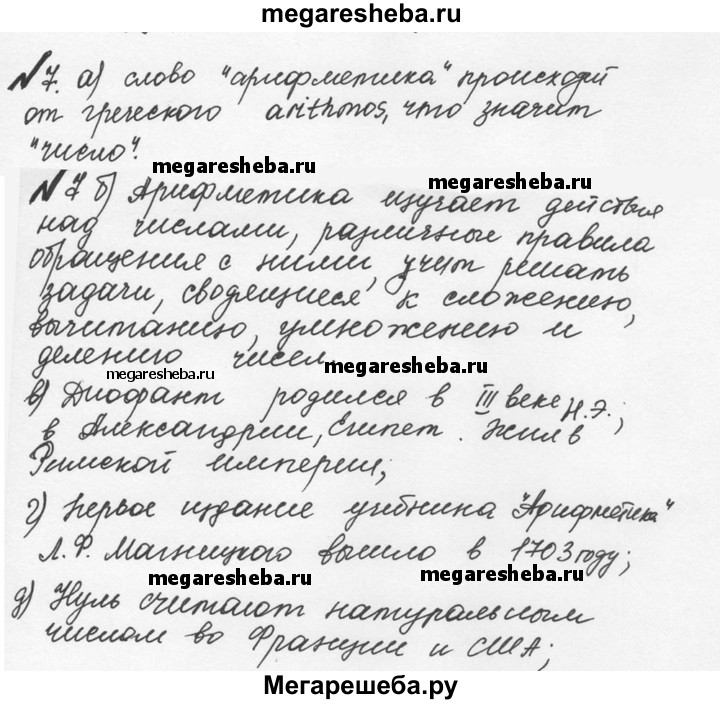 megaresheba.ru
№7. а) слово "арифметика" происходит
от греческого arithmos, что значит
"число".
megaresheba.ru
megaresheba.ru
№7 б) Арифметика изучает действия
над числами, различные правила
обращения с ними, учит решать
задачи, сводящиеся к сложению,
вычитанию, умножению и
делению чисел
megaresheba.ru
megaresheba.ru
в) Диофант родился в III веке н.э.;
в Александрии, Египет. Жил в
Римской империи;
г) Первое издание учебника "Арифметика"
Л.Ф. Магницкого вышло в 1703 году;
megaresheba.ru
megaresheba.ru
д) Нуль считают натуральным
числом во Франции и США;
Мегарешеба.ру